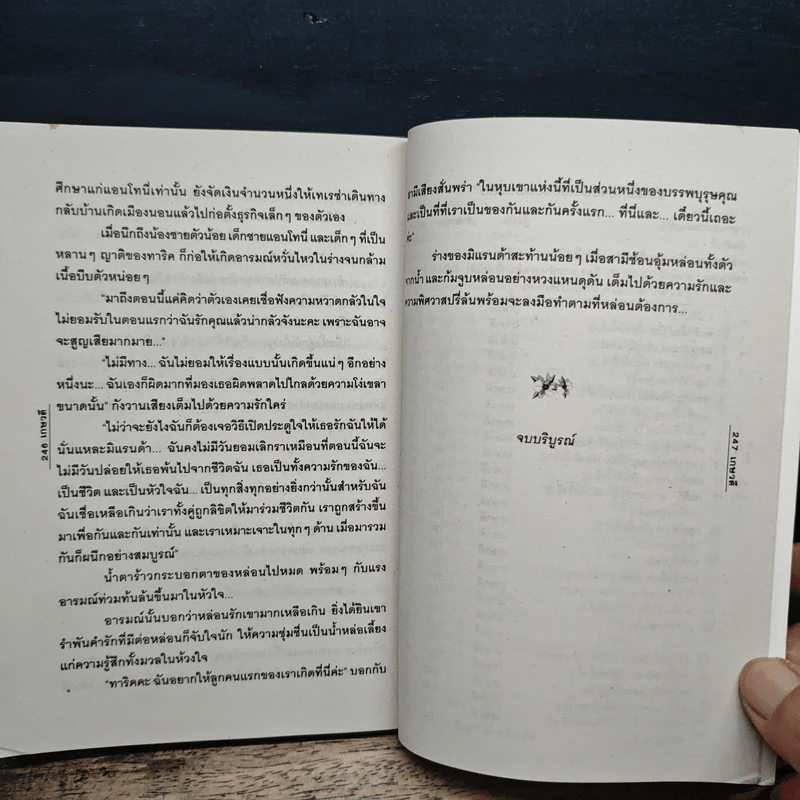 ศึกษาแก่แอนโทนี่เท่านั้น ยังจัดเงินจำนวนหนึ่งให้เทเรซ่าเดินทาง
กลับบ้านเกิดเมืองนอนแล้วไปก่อตั้งธุรกิจเล็กๆ ของตัวเอง
เมื่อนึกถึงน้องชายตัวน้อย เด็กชายแอนโทนี่ และเด็กๆ ที่เป็น
หลานๆ ญาติของทาริค ก็ก่อให้เกิดอารมณ์หวั่นไหวในร่างจนกล้าม
เนื้อบีบตัวหน่อยๆ
"มาถึงตอนนี้แค่คิดว่าตัวเองเคยเชื่อฟังความหวาดกลัวในใจ
ไม่ยอมรับในตอนแรกว่าฉันรักคุณแล้วน่ากลัวจังนะคะ เพราะฉันอาจ
จะสูญเสียมากมาย..."
"ไม่มีทาง... ฉันไม่ยอมให้เรื่องแบบนั้นเกิดขึ้นแน่ๆ อีกอย่าง
หนึ่งนะ... ฉันเองก็ผิดมากที่มองเธอผิดพลาดไปไกลด้วยความโง่เขลา
ขนาดนั้น" กังวานเสียงเต็มไปด้วยความรักใคร่
"ไม่ว่าจะยังไงฉันก็ต้องเจอวิธีเปิดประตูใจให้เธอรักฉันให้ได้
นั่นแหละมิแรนด้า... ฉันคงไม่มีวันยอมเลิกราเหมือนที่ตอนนี้ฉันจะ
ไม่มีวันปล่อยให้เธอพ้นไปจากชีวิตฉัน เธอเป็นทั้งความรักของฉัน...
เป็นชีวิต และเป็นหัวใจฉัน... เป็นทุกสิ่งทุกอย่างยิ่งกว่านั้นสำหรับฉัน
ฉันเชื่อเหลือเกินว่าเราทั้งคู่ถูกลิขิตให้มาร่วมชีวิตกัน เราถูกสร้างขึ้น
มาเพื่อกันและกันเท่านั้น และเราเหมาะเจาะในทุกๆ ด้าน เมื่อมารวม
กันก็ผนึกอย่างสมบูรณ์"
น้ำตาร้าวกระบอกตาของหล่อนไปหมด พร้อมๆ กับแรง
อารมณ์ท่วมท้นล้นขึ้นมาในหัวใจ...
อารมณ์นั้นบอกว่าหล่อนรักเขามากเหลือเกิน ยิ่งได้ยินเขา
รำพันคำรักที่มีต่อหล่อนก็จับใจนัก ให้ความชุ่มชื่นเป็นน้ำหล่อเลี้ยง
แก่ความรู้สึกทั้งมวลในห้วงใจ
"ทาริคคะ ฉันอยากให้ลูกคนแรกของเราเกิดที่นี่ค่ะ" บอกกับ
246 เกษวดี
สามีเสียงสั่นพร่า "ในหุบเขาแห่งนี้ที่เป็นส่วนหนึ่งของบรรพบุรุษคุณ
และเป็นที่ที่เราเป็นของกันและกันครั้งแรก... ที่นี่และ... เดี๋ยวนี้เถอะ
ค่ะ"
ร่างของมิแรนด้าสะท้านน้อยๆ เมื่อสามีช้อนอุ้มหล่อนทั้งตัว
จากน้ำ และก้มจูบหล่อนอย่างหวงแหนดุดัน เต็มไปด้วยความรักและ
ความพิศวาสปรี่ล้นพร้อมจะลงมือทำตามที่หล่อนต้องการ...
จบบริบูรณ์
247 เกษวดี